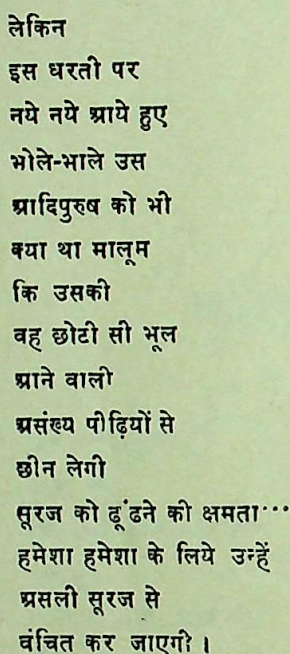 लेकिन
इस धरती पर
नये नये आये हुए
भोले-भाले उस
आदिपुरुष को भी
क्या था मालूम
कि उसकी
वह छोटी सी भूल
आने वाली
असंख्य पीढ़ियों से
छीन लेगी
सूरज को ढूंढने की क्षमता...
हमेशा हमेशा के लिये उन्हें
असली सूरज से
वंचित कर जाएगी।